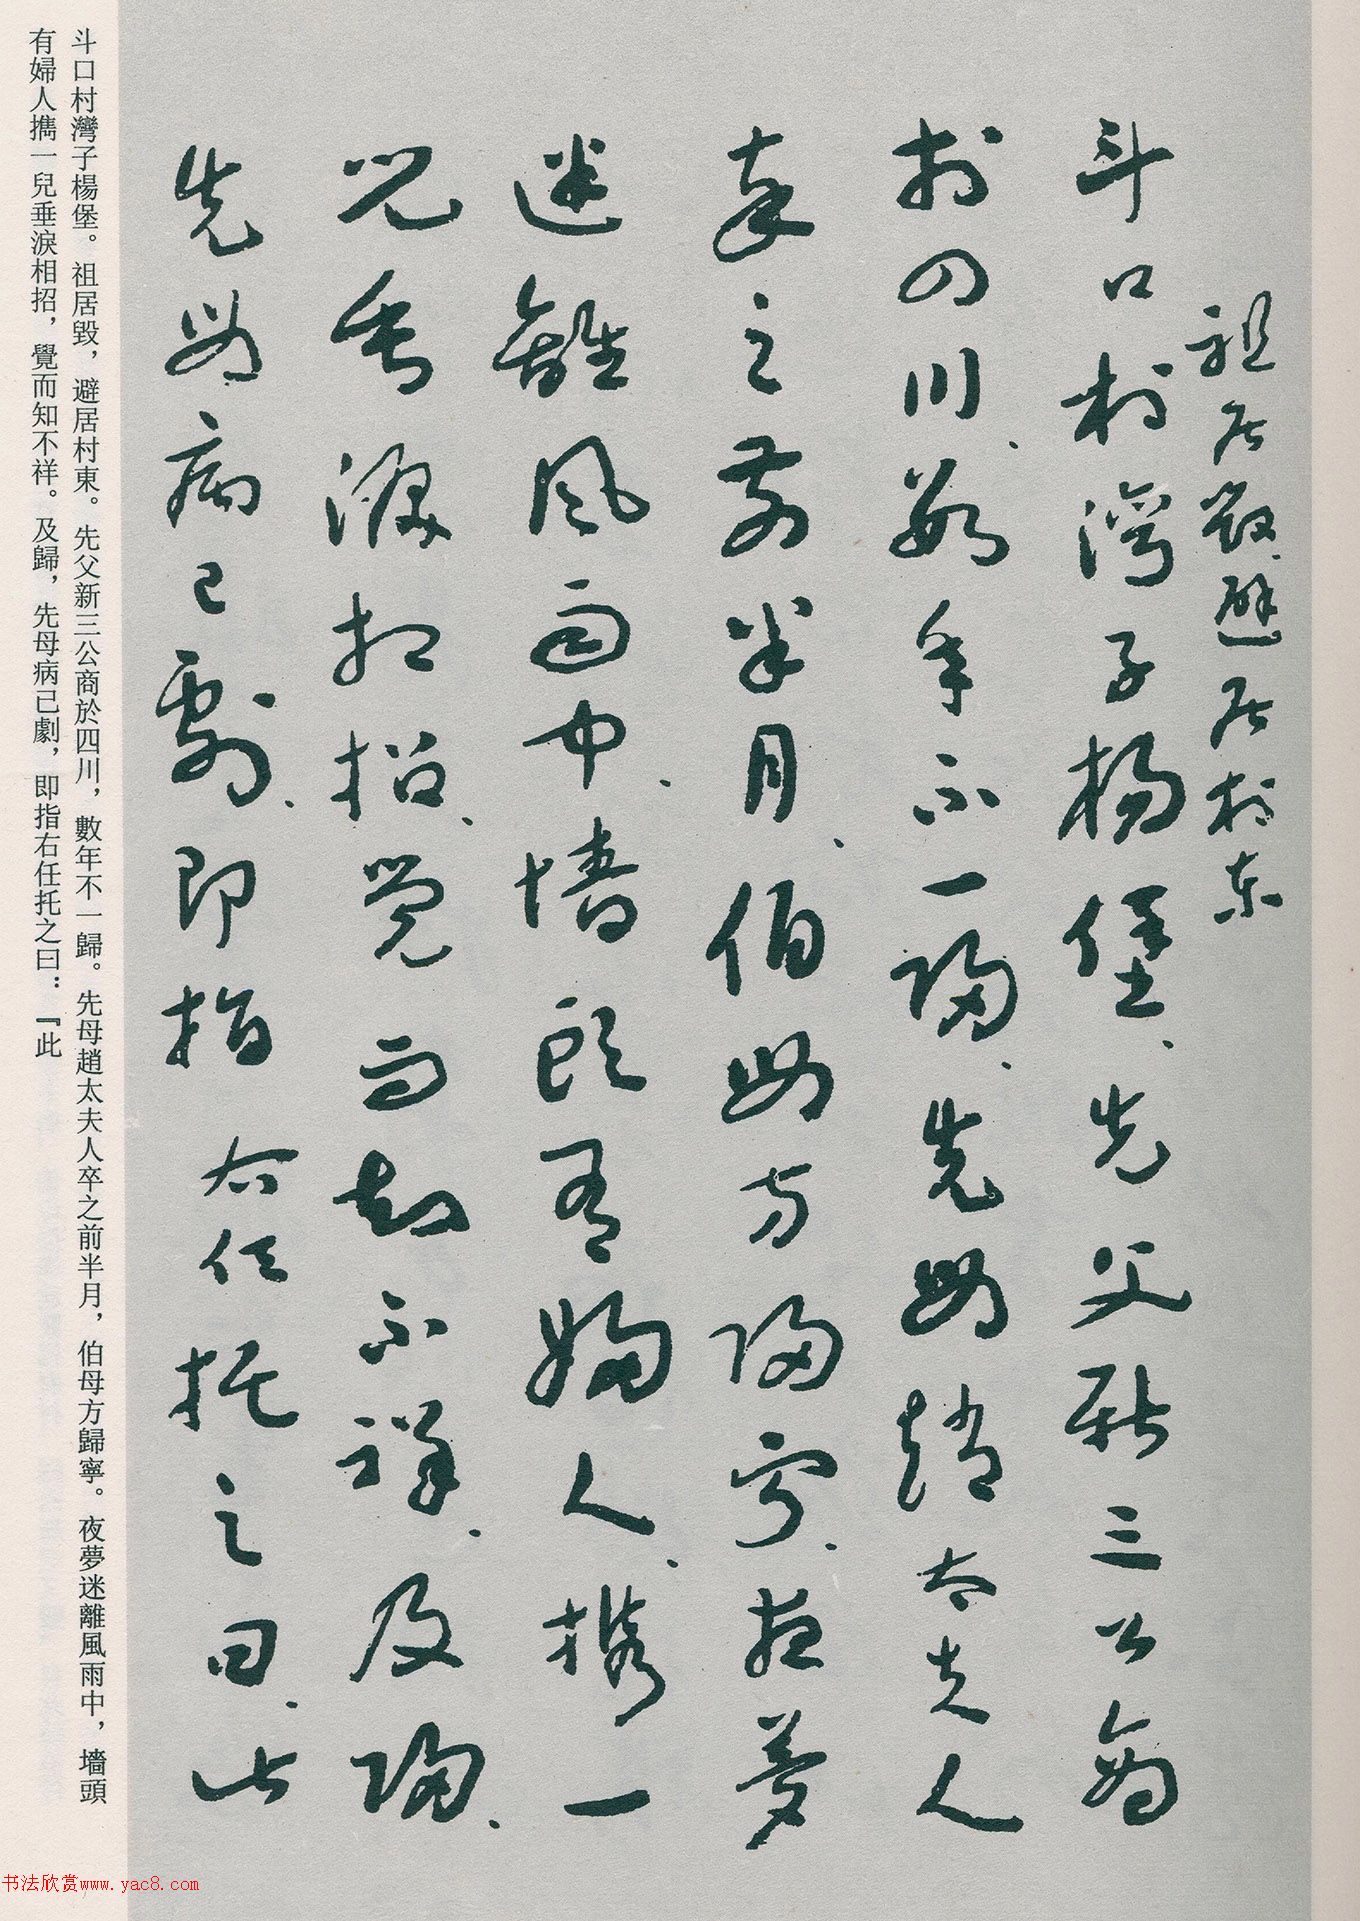 祖居毀、避居村東
斗口村灣子楊堡、先父新三公商
於四川、數年不一歸、先母趙太夫人
卒之前半月、伯母方歸寧、夜夢
迷離風雨中、墻頭有婦人、攜一
兒垂淚相招、覺而知不祥、及歸、
先母病已劇、即指右任托之曰、此
斗口村灣子楊堡。祖居毀，避居村東。先父新三公商於四川，數年不一歸。先母趙太夫人卒之前半月，伯母方歸寧。夜夢迷離風雨中，墻頭
有婦人攜一兒垂淚相招，覺而知不祥。及歸，先母病已劇，即指右任托之曰：『此
书法欣赏www.yac8.com